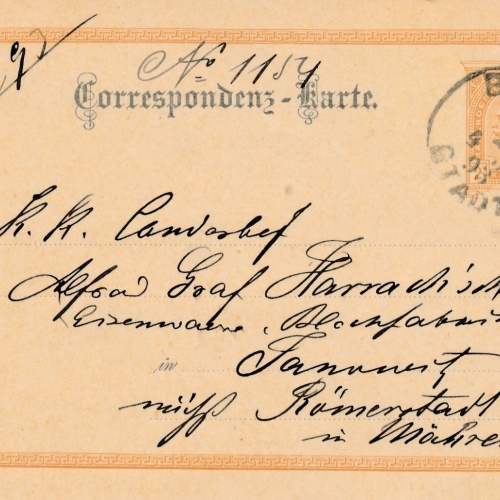 No 1154
Correspondenz-Karte.
B
9
93
STADT
K. K. Landesbef
Alfred Graf Harrach'sch
Eisenwaare, Blechfabrik
in Janowitz
nächst Römerstadt
in Mähre